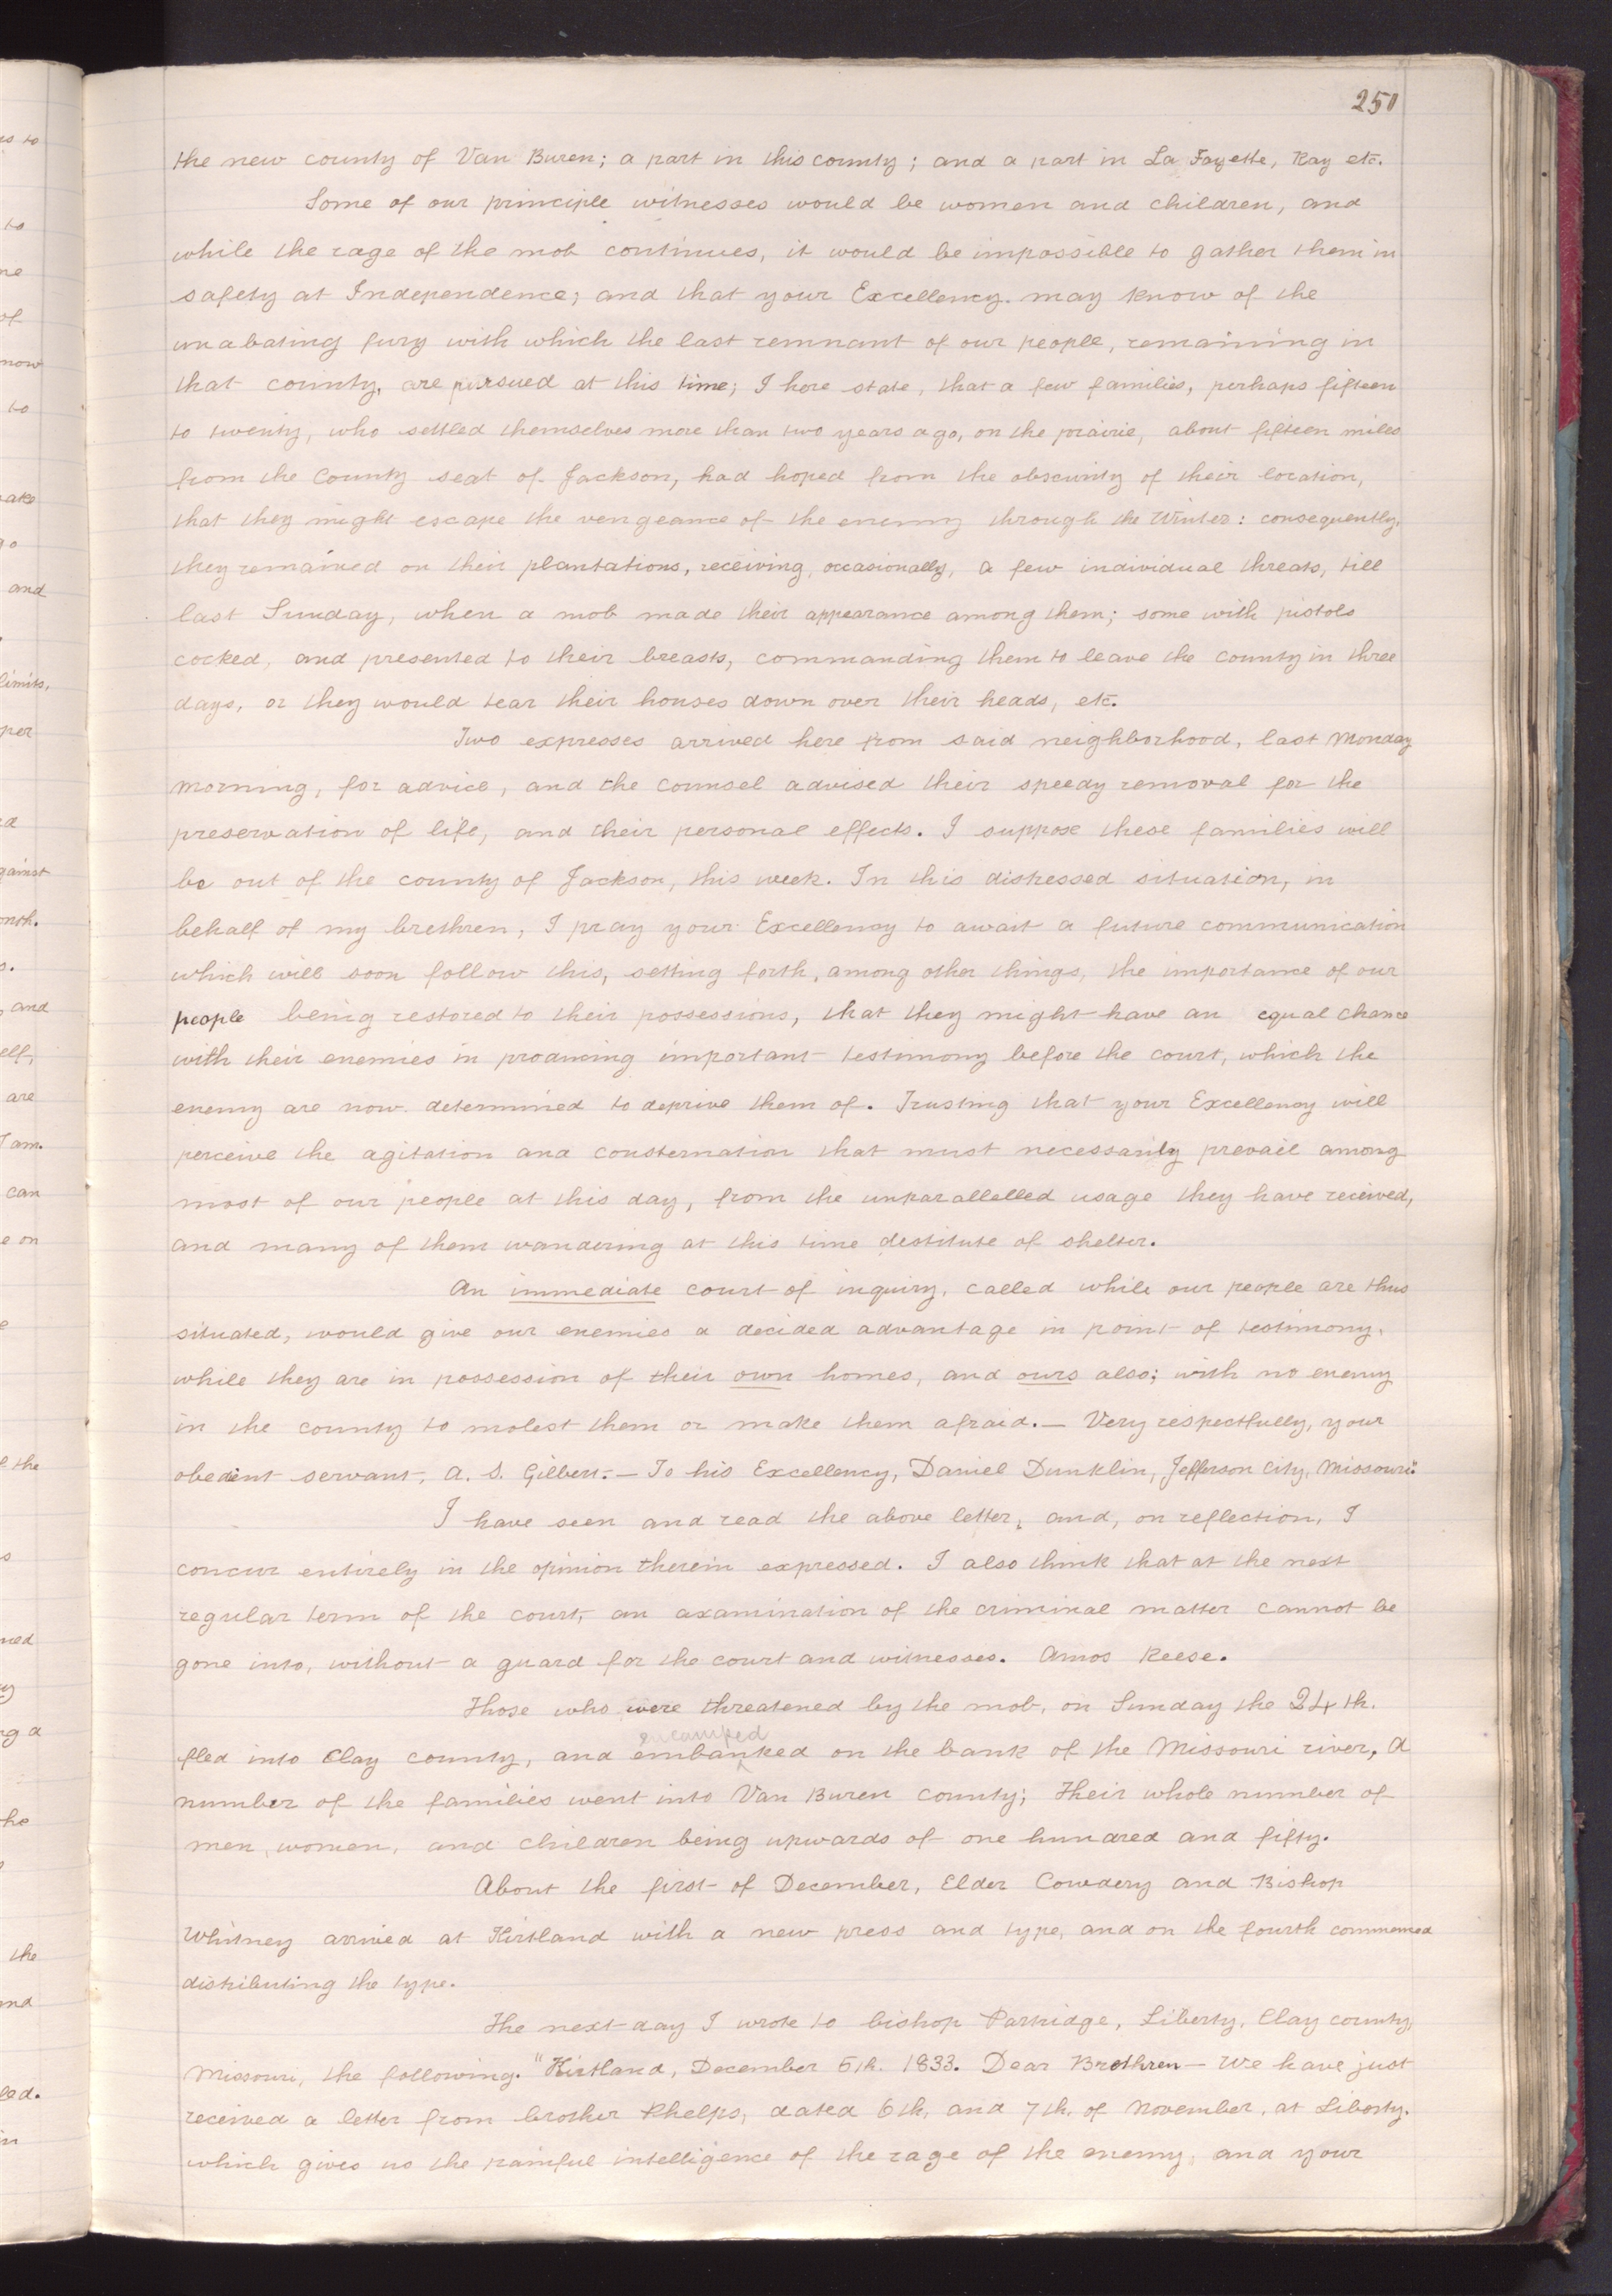 250
the new county of Van Buren; a part in this county; and a part in La Fayette, Ray etc.
Some of our principle witnesses would be women and children, and
while the rage of the mob continues, it would be impossible to gather them in
safety at Independence; and that your Excellency may know of the
unabating fury with which the last remnant of our people, remaining in
that county, are pursued at this time; I here state, that a few families, perhaps fifteen
to twenty, who settled themselves more than two years ago, on the prairie, about fifteen miles
from the County seat of Jackson, had hoped from the obscurity of their location,
that they might escape the vengeance of the enemy through the Winter: consequently,
they remained on their plantations, receiving, occasionally, a few individual threats, till
last Sunday, when a mob made their appearance among them; some with pistols
cocked, and presented to their breasts, commanding them to leave the county in three
days, or they would tear their houses down over their heads, etc.
Two expresses arrived here from said neighborhood, last Monday
morning, for advice, and the counsel advised their speedy removal for the
preservation of life, and their personal effects. I suppose these families will
be out of the county of Jackson, this week. In this distressed situation, in
behalf of my brethren, I pray your Excellency to await a future communication
which will soon follow this, setting forth, among other things, the importance of our
people being restored to their possessions, that they might have an equal chance
with their enemies in producing important testimony before the court, which the
enemy are now determined to deprive them of. Trusting that your Excellency will
perceive the agitation and consternation that must necessarily prevail among
most of our people at this day, from the unparallelled usage they have received,
and many of them wandering at this time destitute of shelter.
An immediate court of inquiry, called while our people are thus
situated, would give our enemies a decided advantage in point of testimony,
while they are in possession of their own homes, and ours also; with no enemy
in the county to molest them or make them afraid.— Very respectfully, your
obedient servant, A. S. Gilbert.— To his Excellency, Daniel Dunklin, Jefferson City, Missouri."
I have seen and read the above letter, and, on reflection, I
concur entirely in the opinion therein expressed. I also think that at the next
regular term of the court, an axamination of the criminal matter cannot be
gone into, without a guard for the court and witnesses. Amos Reese.
Those who were threatened by the mob, on Sunday the 24th.
encamped
fled into Clay county, and embanked on the bank of the Missouri river, A
number of the families went into Van Buren County; Their whole number of
men, women, and children being upwards of one hundred and fifty.
About the first of December, Elder Cowdery and Bishop
Whitney arrived at Kirtland with a new press and type, and on the fourth commenced
distributing the type.
The next day I wrote to bishop Partridge, Liberty, Clay county,
Missouri, the following. "Kirtland, December 5th. 1833. Dear Brethren— We have just
received a letter from brother Phelps, dated 6th, and 7th. of November, at Liberty.
which gives us the painful intelligence of the rage of the enemy, and your